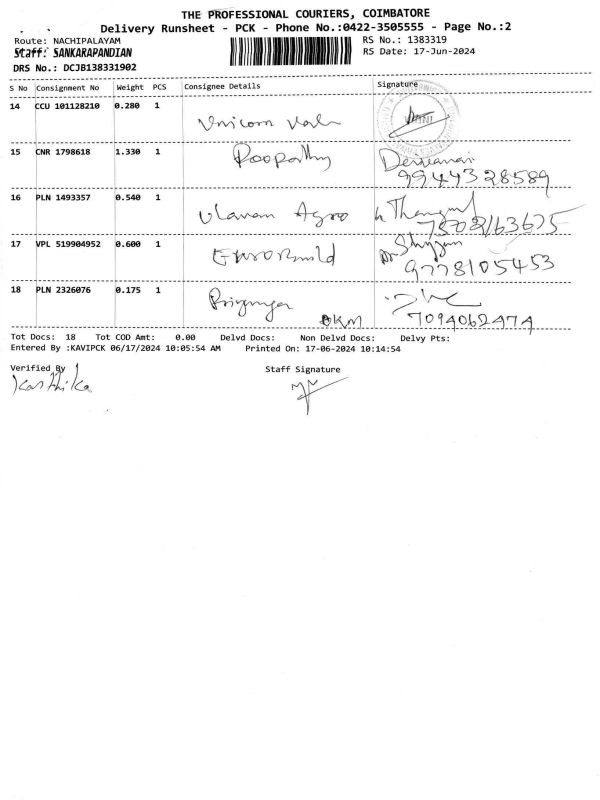 THE PROFESSIONAL COURIERS, COIMBATORE
Delivery Runsheet - PCK - Phone No.:0422-3505555 - Page No.:2
Route: NACHIPALAYAM RS No.: 1383319
Staff: SANKARAPANDIAN RS Date: 17-Jun-2024
DRS No.: DCJB138331902
S No Consignment No Weight PCS Consignee Details Signature
14 CCU 101128210 0.280 1 Unicorn
15 CNR 1798618 1.330 1 Poopathy
9944328589
16 PLN 1493357 0.540 1 Ulavan Agro
17 VPL 519904952 0.600 1 Euro Build
9778105453
18 PLN 2326076 0.175 1 Priyanga
OKM 7094062474
Tot Docs: 18 Tot COD Amt: 0.00 Delvd Docs: Non Delvd Docs: Delvy Pts:
Entered By :KAVIPCK 06/17/2024 10:05:54 AM Printed On: 17-06-2024 10:14:54
Verified By Staff Signature
Karthika